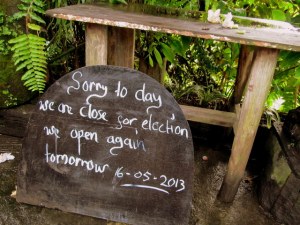 Sorry to day,
we are close for election
we open again
tomorrow 16-05-2013